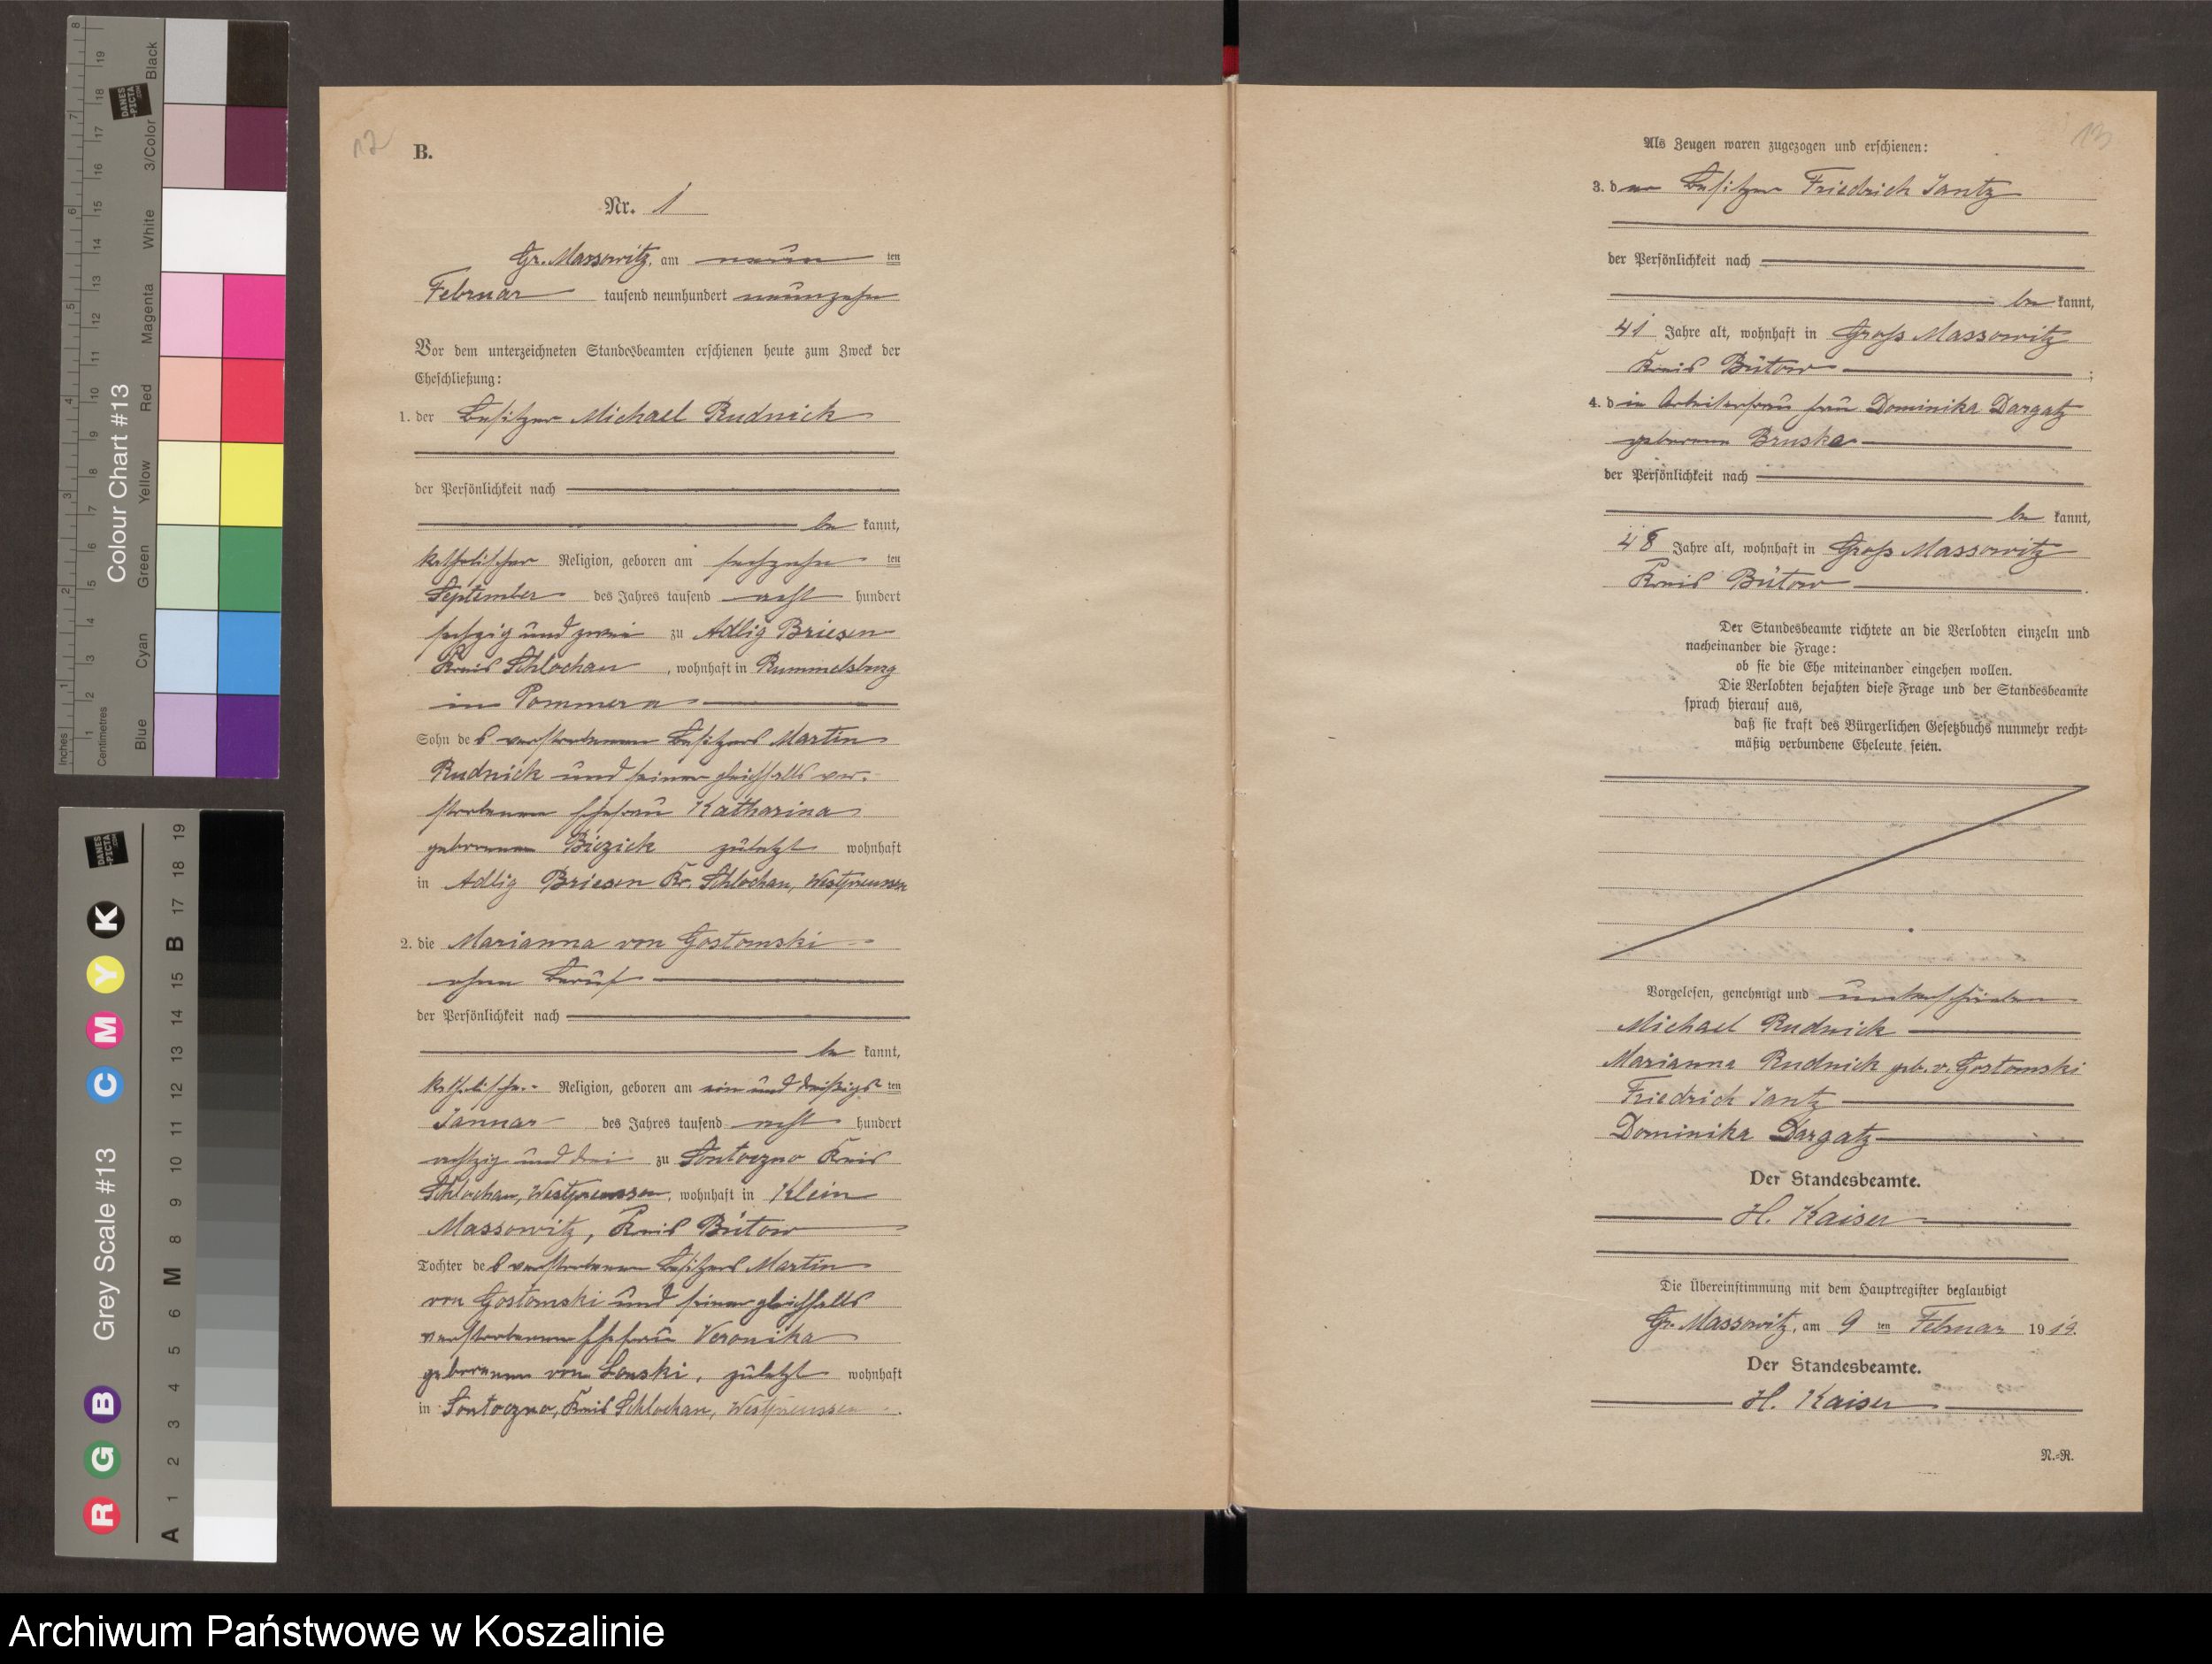 12
B.
Nr. 1
Gr. Massowitz, am neun ten
Februar tausend neunhundert neunzehn
Vor dem unterzeichneten Standesbeamten erschienen heute zum Zweck der
Eheschließung:
1. der Besitzer Michael Rudnick
der Persönlichkeit nach
be kannt,
katholischer Religion, geboren am sechzehn ten
September des Jahres tausend acht hundert
sechzig und zwei zu Adlig Briesen
Kreis Schlochau, wohnhaft in Rummelsburg
in Pommern
Sohn des verstorbenen Besitzers Martin
Rudnick und seiner gleichfalls ver-
storbenen Ehefrau Katharina
geborenen Biezick zuletzt wohnhaft
in Adlig Briesen Kr. Schlochau, Westpreussen
2. die Marianna von Gostomski
ohne Beruf
der Persönlichkeit nach
be kannt,
katholischer Religion, geboren am ein und dreißigs ten
Januar des Jahres tausend acht hundert
achtzig und drei zu Sontoczno Kreis
Schlochau, Westpreussen, wohnhaft in Klein
Massowitz, Kreis Bütow
Tochter des verstorbenen Besitzers Martin
von Gostomski und seiner gleichfalls
verstorbenen Ehefrau Veronika
geborenen von Lonski, zuletzt wohnhaft
in Sontoczno, Kreis Schlochau, Westpreussen
13
Als Zeugen waren zugezogen und erschienen:
3. der Besitzer Friedrich Jantz
der Persönlichkeit nach
be kannt,
41 Jahre alt, wohnhaft in Groß Massowitz
Kreis Bütow;
4. die Arbeiterfrau Frau Dominika Dargatz
geborene Bruska
der Persönlichkeit nach
be kannt,
48 Jahre alt, wohnhaft in Groß Massowitz
Kreis Bütow.
Der Standesbeamte richtete an die Verlobten einzeln und
nacheinander die Frage:
ob sie die Ehe miteinander eingehen wollen.
Die Verlobten bejahten diese Frage und der Standesbeamte
sprach hierauf aus,
daß sie kraft des Bürgerlichen Gesetzbuchs nunmehr recht-
mäßig verbundene Eheleute seien.
Vorgelesen, genehmigt und unterschrieben
Michael Rudnick
Marianna Rudnick geb. v. Gostomski
Friedrich Jantz
Dominika Dargatz
Der Standesbeamte.
H. Kaiser
Die Übereinstimmung mit dem Hauptregister beglaubigt
Gr. Massowitz, am 9 ten Februar 1919.
Der Standesbeamte.
H. Kaiser
N.-R.
Colour Chart #13
Inches
Centimetres
Blue
Cyan
Green
Yellow
Red
Magenta
White
3/Color
Black
DANES-PICTA.COM
Grey Scale #13
R G B C M Y K
A 1 2 3 4 5 6 M 8 9 10 11 12 13 14 15 B 17 18 19
DANES-PICTA.COM
Archiwum Państwowe w Koszalinie